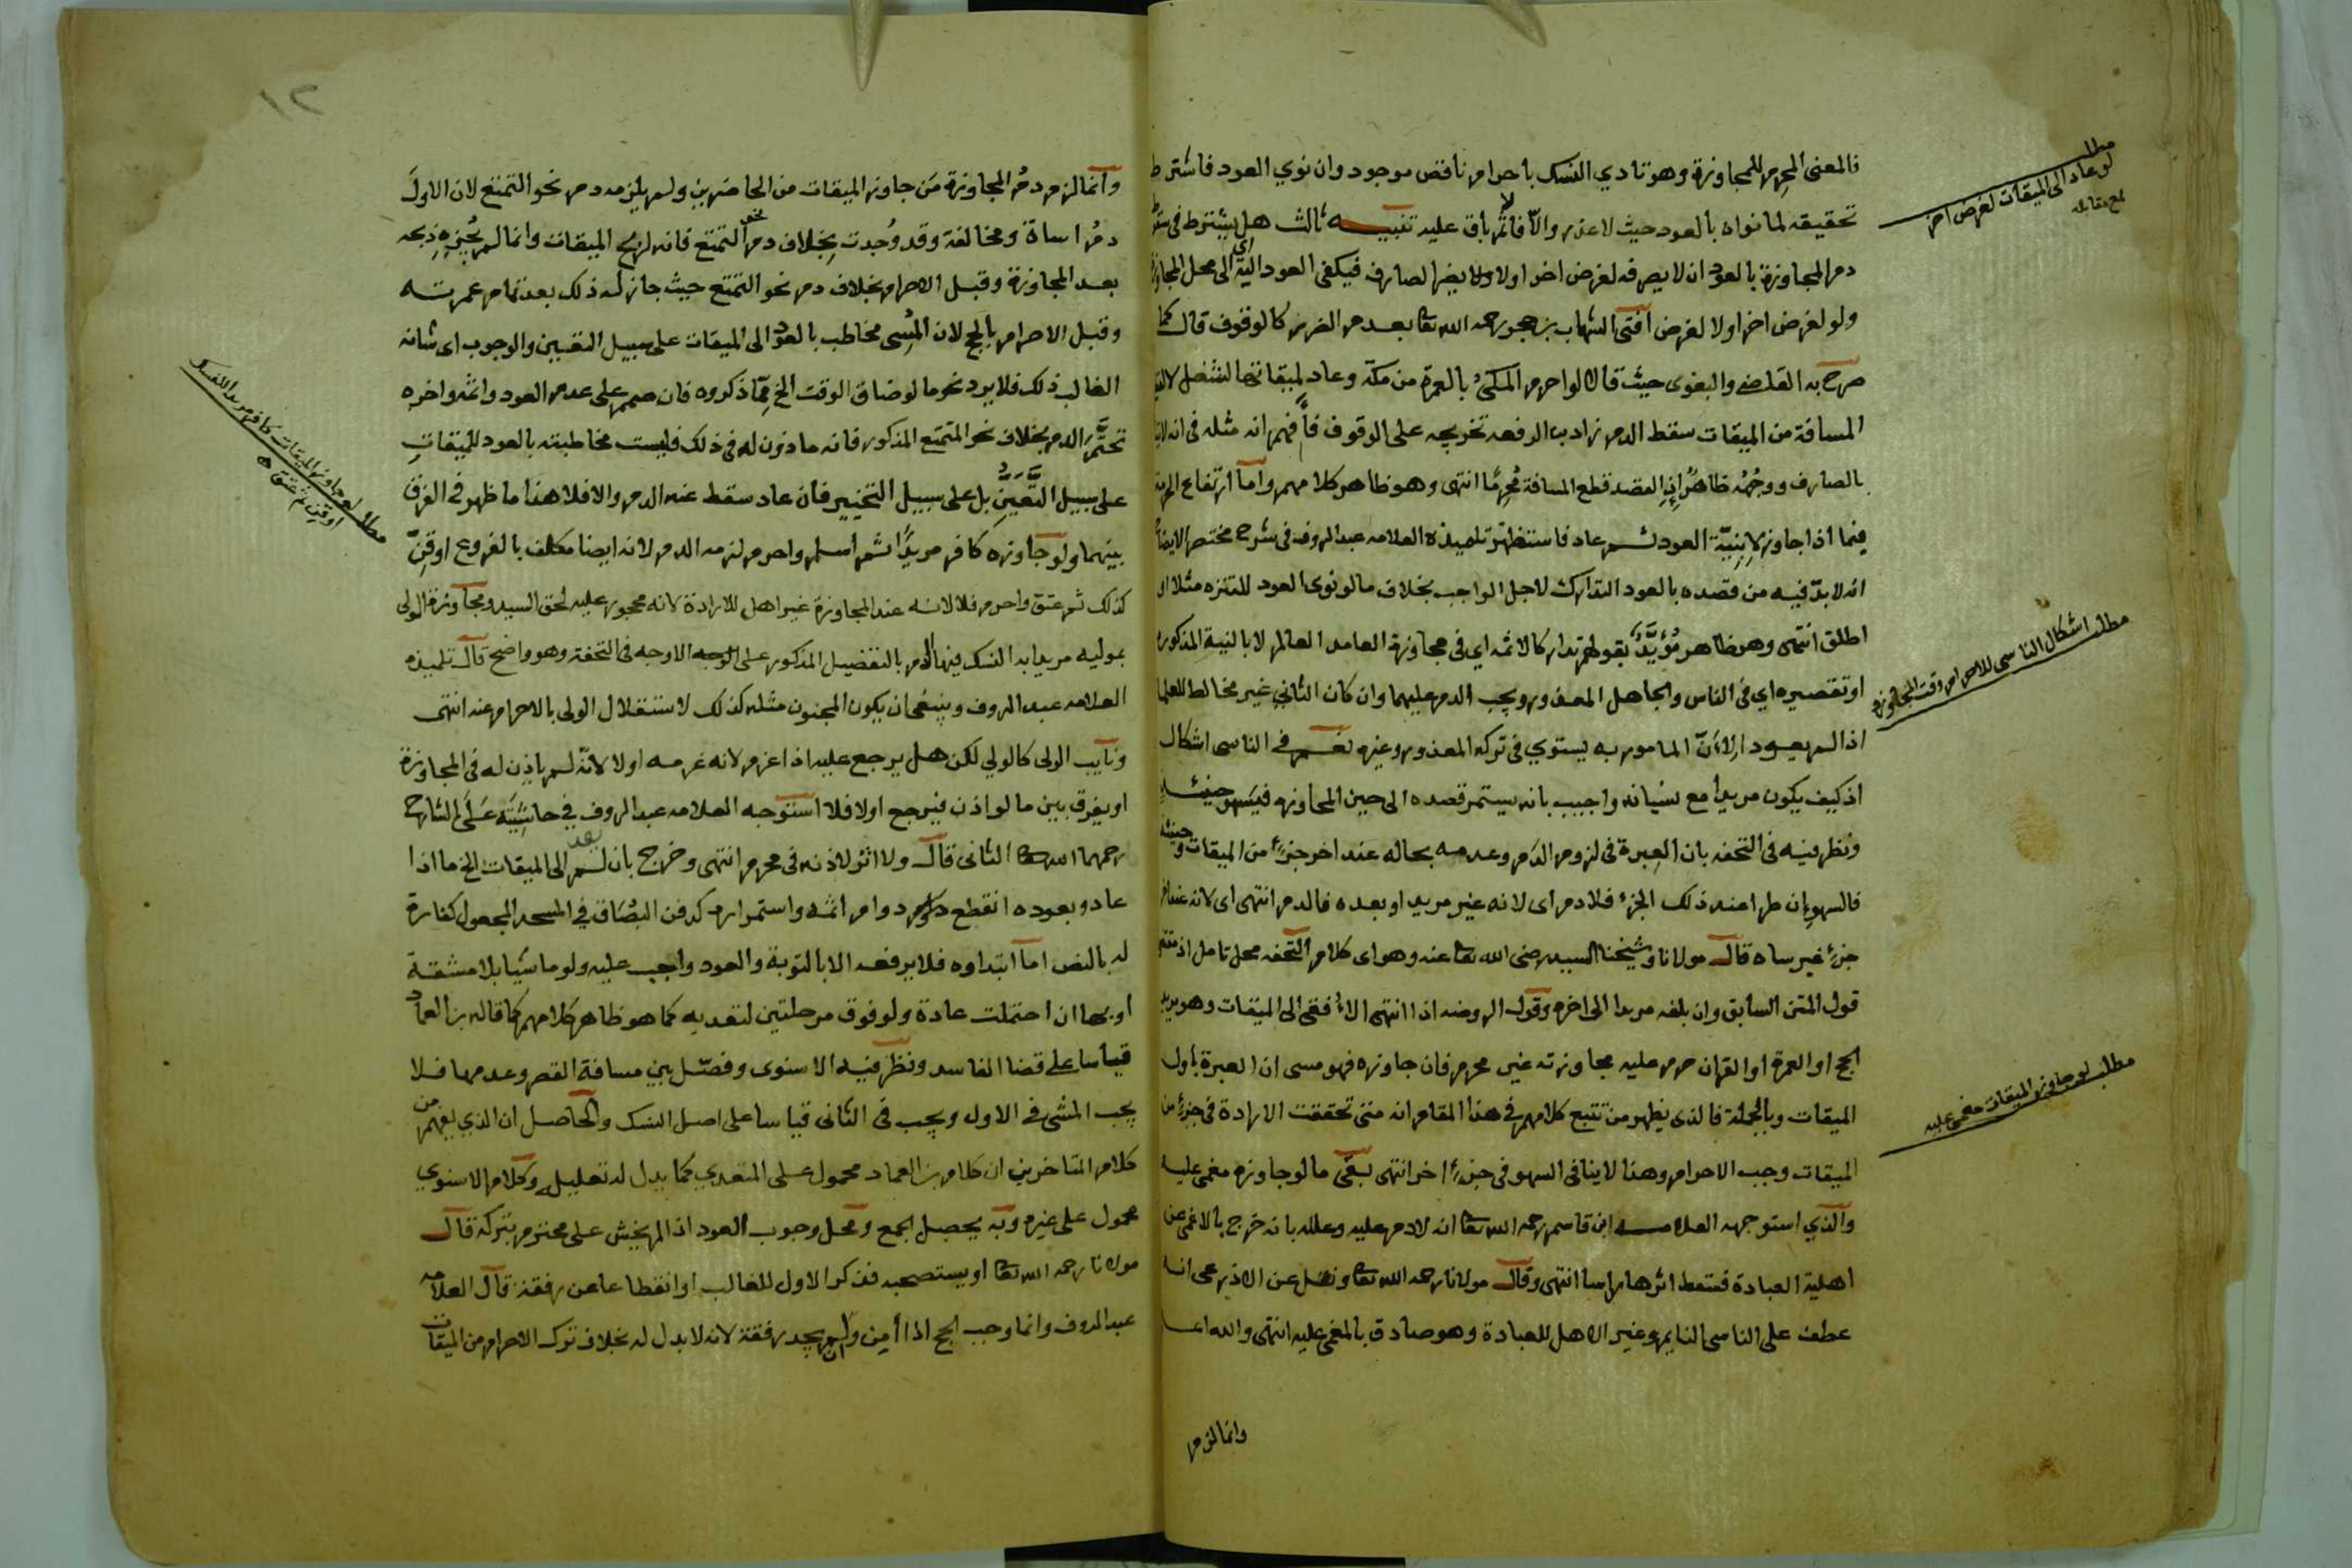 فالمعنى المحرم للمجاوزة وهو تادي النسك باحرام ناقص موجود وان نوي العود فاشترط
تحقيقه لما نواه بالعود حيث لا عذر والا فاثم باق عليه تنبيه ثالث هل يشترط في سقوط
دم المجاوزة بالعود ان لا يصرفه لغرض اخر اولا ولا يضر الصارف فيكفى العود الى محل المجاوزة
ولو لغرض اخر اولا لغرض افتى الشهاب بن حجر رحمه الله تعا بعدم الضرر كالوقوف قال كما
صرح به القاضي والبغوى حيث قالا لو احرم المكي بالعمرة من مكة وعاد لميقاتها لشغل لا لقطع
المسافة من الميقات سقط الدم زاد بن الرفعه تخريجه على الوقوف فافهم انه مثله في انه لا يتاثر
بالصارف ووجهه ظاهر اذ القصد قطع المسافة محرما انتهى وهو ظاهر كلامهم واما ارتفاع الحرمة
فيما اذا جاوز لا بنية العود ثم عاد فاستظهر تلميذه العلامه عبد الروف في شرح مختصر الايضاح
انه لا بد فيه من قصده بالعود التدارك لاجل الواجب بخلاف ما لو نوى العود للتنزه مثلا او
اطلق انتهى وهو ظاهر مؤيد بقولهم تداركا لاثمه اي في مجاوزة العامد العالم لا بالنية المذكوره
او تقصيره اي في الناس والجاهل المعذور ويجب الدم عليهما وان كان الثاني غير مخالط للعلما
اذا لم يعود الان المامور به يستوي في تركه المعذور وغيره نعم في الناسى اشكال
اذ كيف يكون مريدا مع نسيانه واجيب بانه يستمر قصده الى حين المجاوزه فيسهو حينئذ
ونظر فيه في التحفه بان العبرة في لزوم الدم وعدمه بحاله عند اخر جزء من الميقات وحينئذ
فالسهو ان طرا عند ذلك الجزء فلا دم اى لانه غير مريد او بعده فالدم انتهى اى لانه عند اخر
جزء غير ساه قال مولانا وشيخنا السيد رضى الله تعا عنه وهو اى كلام التحفه محل تامل اذ مقتضى
قول المتن السابق وان بلغه مريدا الى اخره وقول الروضه اذا انتهى الافقى الى الميقات وهو يريد
الحج او العمرة او القران حرم عليه مجاوزته غير محرم فان جاوزه فهو مسى ان العبرة باول
الميقات وبالجملة فالذى يظهر من تتبع كلامهم في هذا المقام انه متى تحققت الارادة في جزء من
الميقات وجب الاحرام وهذا لا ينافى السهو في جزء اخر انتهى بقى ما لو جاوزه مغمى عليه
والذي استوجهه العلامه ابن قاسم رحمه الله تعا انه لا دم عليه وعلله بانه خرج بالاغمى عن
اهلية العبادة فسقط اثرها راسا انتهى وقال مولانا رحمه الله تعا ونقل عن الاذرعى انه
عطف على الناسى النايم وغير الاهل للعبادة وهو صادق بالمغمى عليه انتهى والله اعلم
وانما لزم
لو عاد الى الميقات لغرض اخر
مطلب اشكال الناسى للاحرام وقت المجاوزه
مطلب لو جاوز الميقات مغمى عليه
١٢
وانما لزم دم المجاوزة من جاوز الميقات من الحاضرين ولم يلزمه دم نحو التمتع لان الاول
دم اساة ومخالفة وقد وجدت بخلاف دم نحو التمتع فانه لربح الميقات وانما لم يجزه ذبحه
بعد المجاوزة وقبل الاحرام بخلاف دم نحو التمتع حيث جاز له ذلك بعد تمام عمرته
وقبل الاحرام بالحج لان المسى مخاطب بالعود الى الميقات على سبيل التعيين والوجوب اى شانه
الغالب ذلك فلا يرد نحو ما لو ضاق الوقت الخ مما ذكروه فان صمم على عدم العود واثمه واخره
تحتم الدم بخلاف نحو المتمتع المذكور فانه ماذون له في ذلك فليست مخاطبته بالعود للميقات
على سبيل التعين بل على سبيل التخيير فان عاد سقط عنه الدم والا فلا هذا ما ظهر في الفرق
بينهما ولو جاوزه كافر مريدا ثم اسلم واحرم لزمه الدم لانه ايضا مكلف بالفروع او قن
كذلك ثم عتق واحرم فلا لانه عند المجاوزة غير اهل للارادة لانه محجور عليه لحق السيد ومجاوزة الولى
بموليه مريدا به النسك فيها الدم بالتفضيل المذكور على الوجه الاوجه في التحفة وهو واضح قال تلميذه
العلامه عبد الروف وينبغى ان يكون المجنون مثله كذلك لاستقلال الولى بالاحرام عنه انتهى
ونايب الولى كالولي لكن هل يرجع عليه اذا غرم لانه غرمه اولا لانه لم ياذن له في المجاوزة
او يفرق بين ما لو اذن فيرجع اولا فلا استوجه العلامه عبد الروف في حاشيته على الشارح
رحمهما الله تعا الثانى قال ولا اثر لاذنه في محرم انتهى وخرج بان لم يعد الى الميقات الخ ما اذا
عاد وبعوده انقطع دوام اثمه واستمراره كدفن البصاق في المسجد المجعول كفارة
له بالنص اما ابتداوه فلا يرفعه الا بالتوبة والعود واجب عليه ولو ماشيا بلا مشقة
او بها ان احتملت عادة ولو فوق مرحلتين لتعديه كما هو ظاهر كلامهم كما قاله بن العماد
قياسا على قضا الفاسد ونظر فيه الاسنوى وفصل بين مسافة القصر وعدمها فلا
يجب المشى في الاول ويجب في الثانى قياسا على اصل النسك والحاصل ان الذي يفهم من
كلام المتاخرين ان كلام بن العماد محمول على المتعدي كما يدل له تعليله وكلام الاسنوي
محمول على غيره وبه يحصل الجمع ومحل وجوب العود اذا لم يخش على محترم بتركه قال
مولانا رحمه الله تعا او يستصحبه فذكر الاول للغالب او انقطاعا عن رفقة قال العلامه
عبد الروف وانما وجب الحج اذا أمن وان لم يجد رفقة لانه لا بدل له بخلاف ترك الاحرام من الميقات
مطلب لو جاوز الميقات كافر مريدا للنسك
او قن ثم عتق